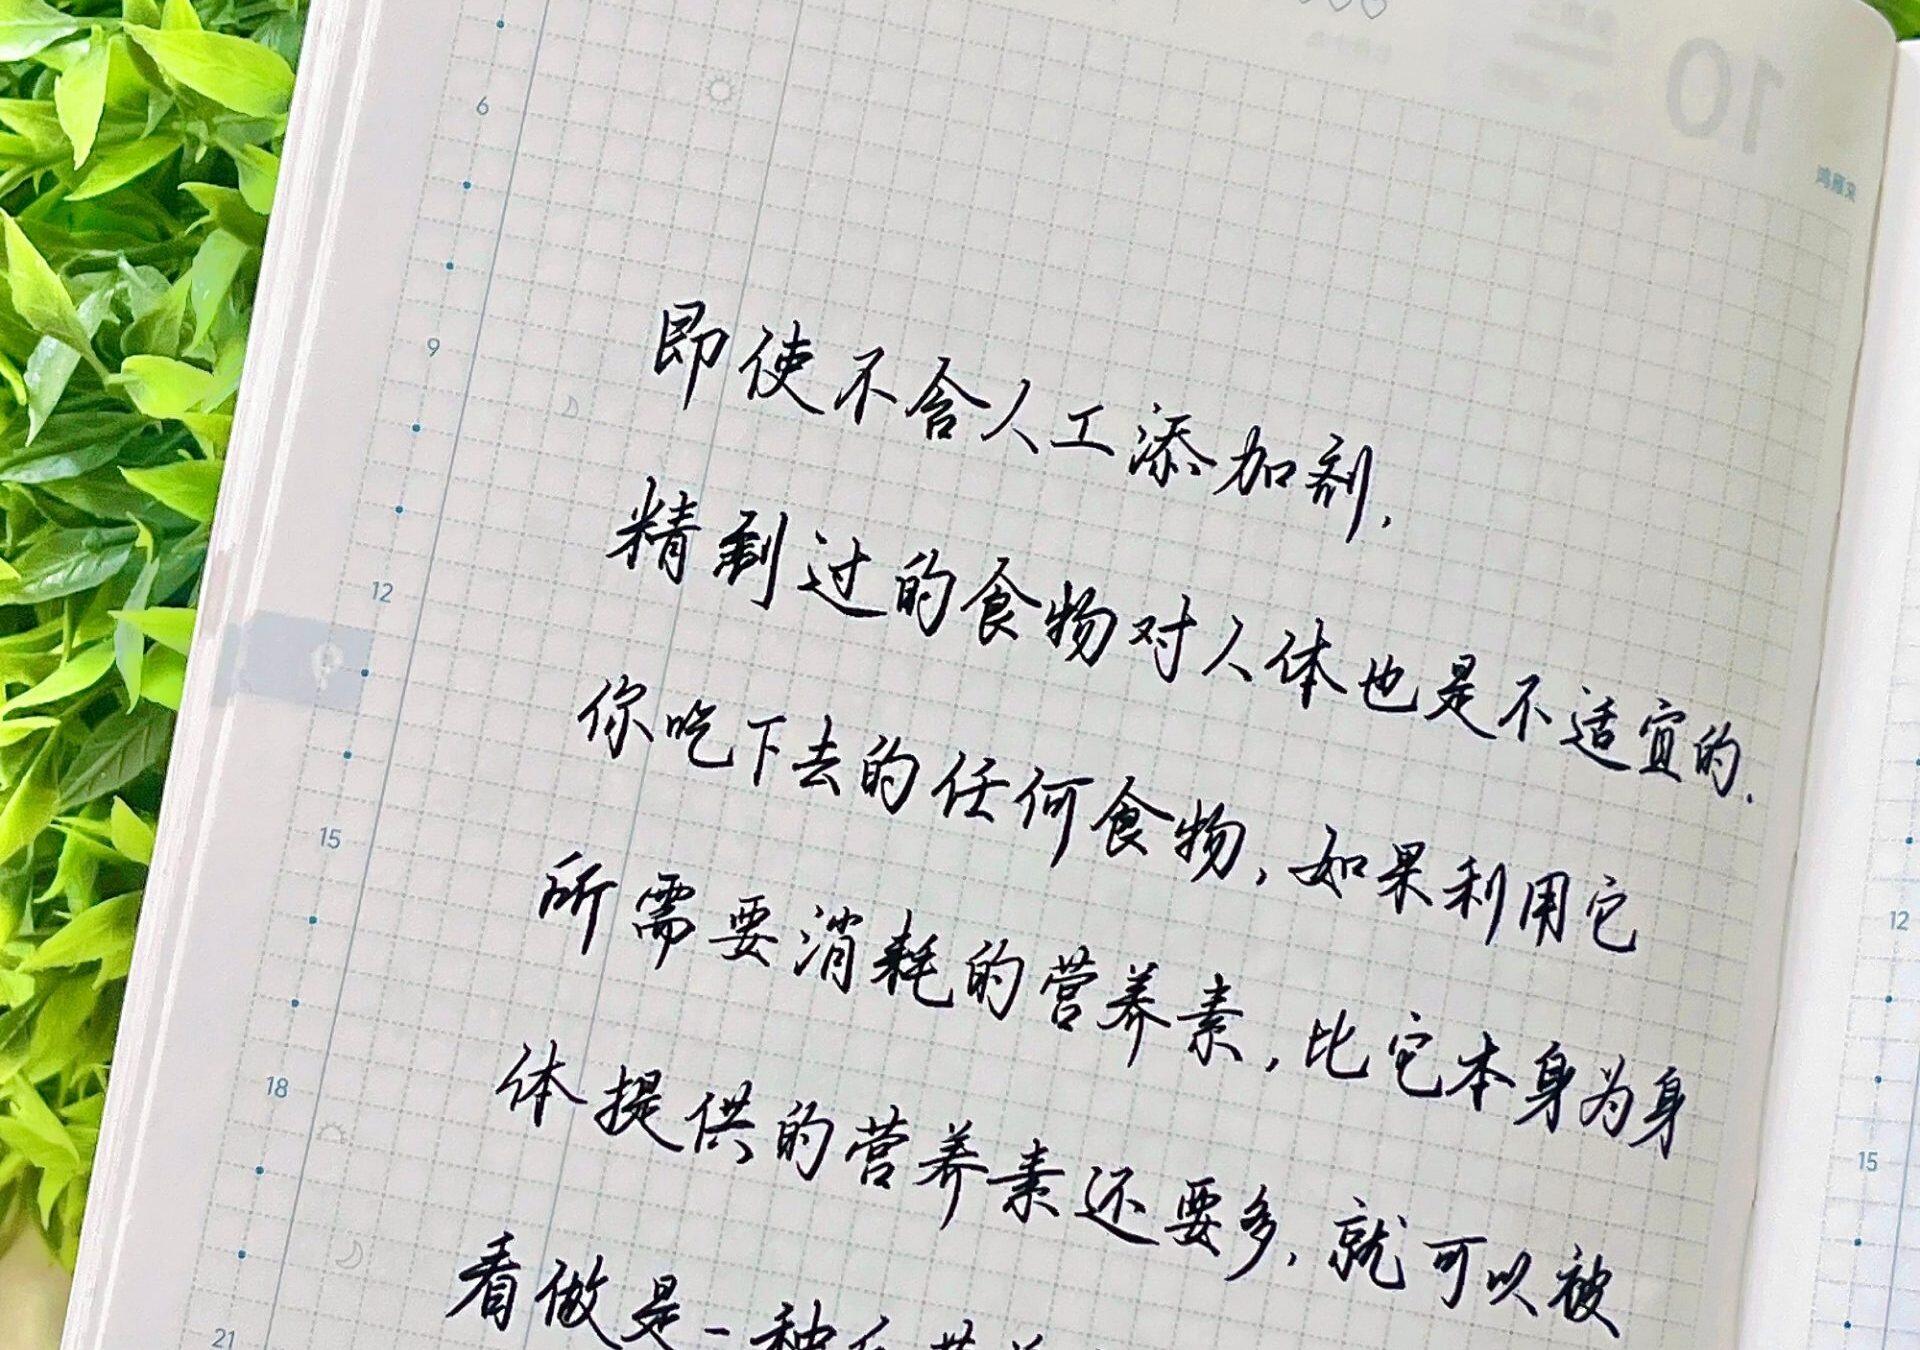 即使不含人工添加剂,
精制过的食物对人体也是不适宜的.
你吃下去的任何食物,如果利用它
所需要消耗的营养素,比它本身为身
体提供的营养素还要多,就可以被
看做是一种
6
9
12
15
18
21
12
15
10